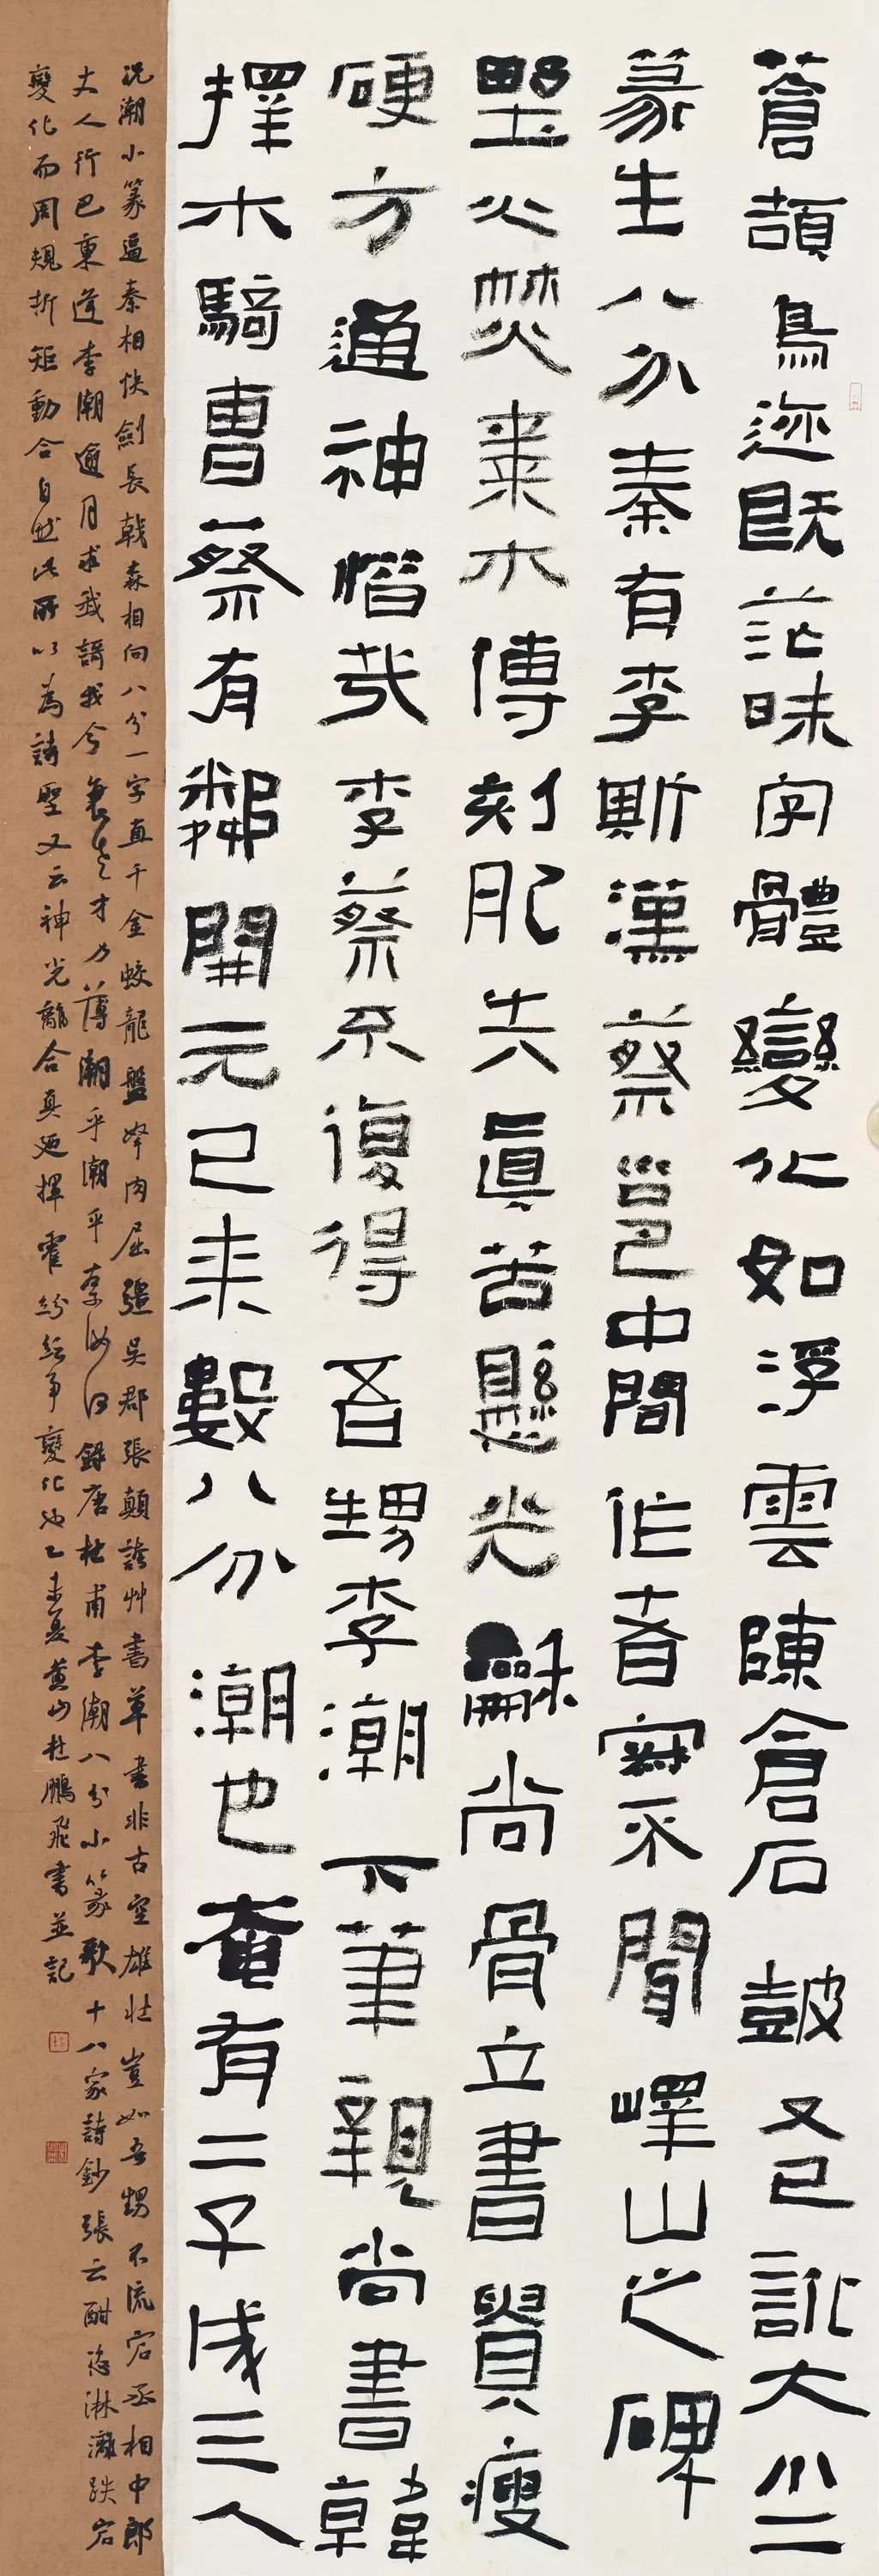 蒼頡鳥迹既茫昧字體變化如浮雲陳倉石鼓又已訛大小二
篆生八分秦有李斯漢蔡邕中間作者寂不聞嶧山之碑
野火焚棗木傳刻肥失真苦縣光龢尚骨立書貴瘦
硬方通神惜哉李蔡不復得吾甥李潮下筆親尚書韓
擇木騎曹蔡有鄰開元已來數八分潮也奄有二子成三人
況潮小篆逼秦相快劍長戟森相向八分一字直千金蛟龍盤拏肉屈強吳郡張顛誇艸書草書非古空雄壯豈如吾甥不流宕丞相中郎
丈人行巴東逢李潮逾月求我謌我今衰老才力薄潮乎潮乎奈汝何錄唐杜甫李潮八分小篆歌十八家詩鈔張云酣恣淋漓跌宕
變化而周規折矩動合自然此所以為詩聖又云神光離合真迺揮霍紛紜爭變化也乙未夏黃山杜鵬飛書並記